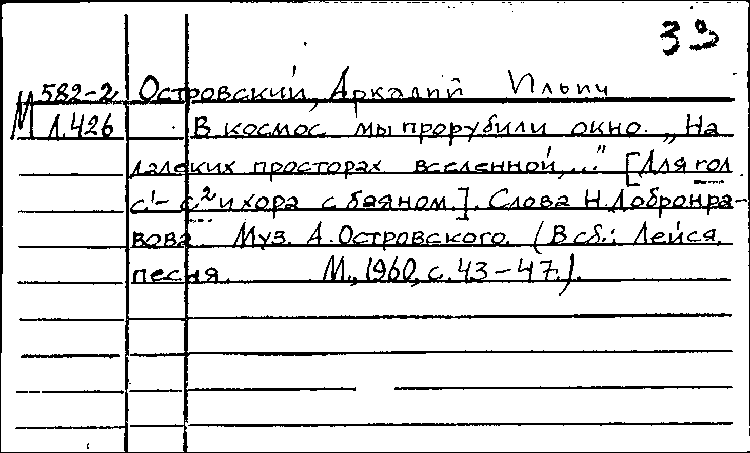 39
М 582-2 Островский, Аркадий Ильич
Л.426 В космос мы прорубили окно. „На
далеких просторах вселенной,..." [Для гол.
с¹- с² и хора с баяном.]. Слова Н. Добронра-
вова. Муз. А. Островского. (В сб.: Лейся,
песня. М., 1960, с. 43-47.).